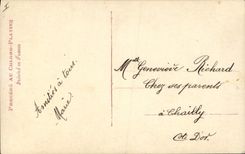 PROCÉDÉ AU CHLORO-PLATINE
Printed in France
Amitiés à tous.
Marie
Mlle Geneviève Richard
Chez ses parents
à Chailly
Côte D'or.